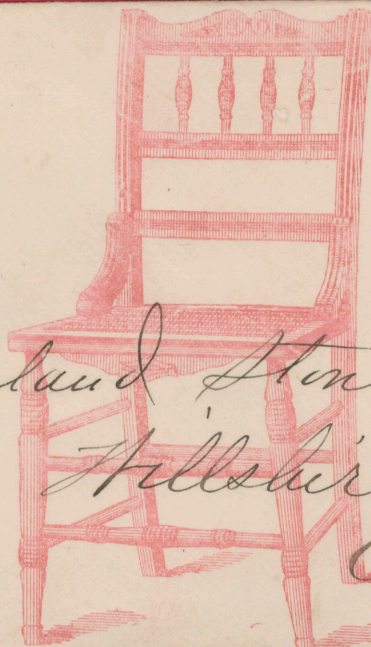 land Ston
Hillshir